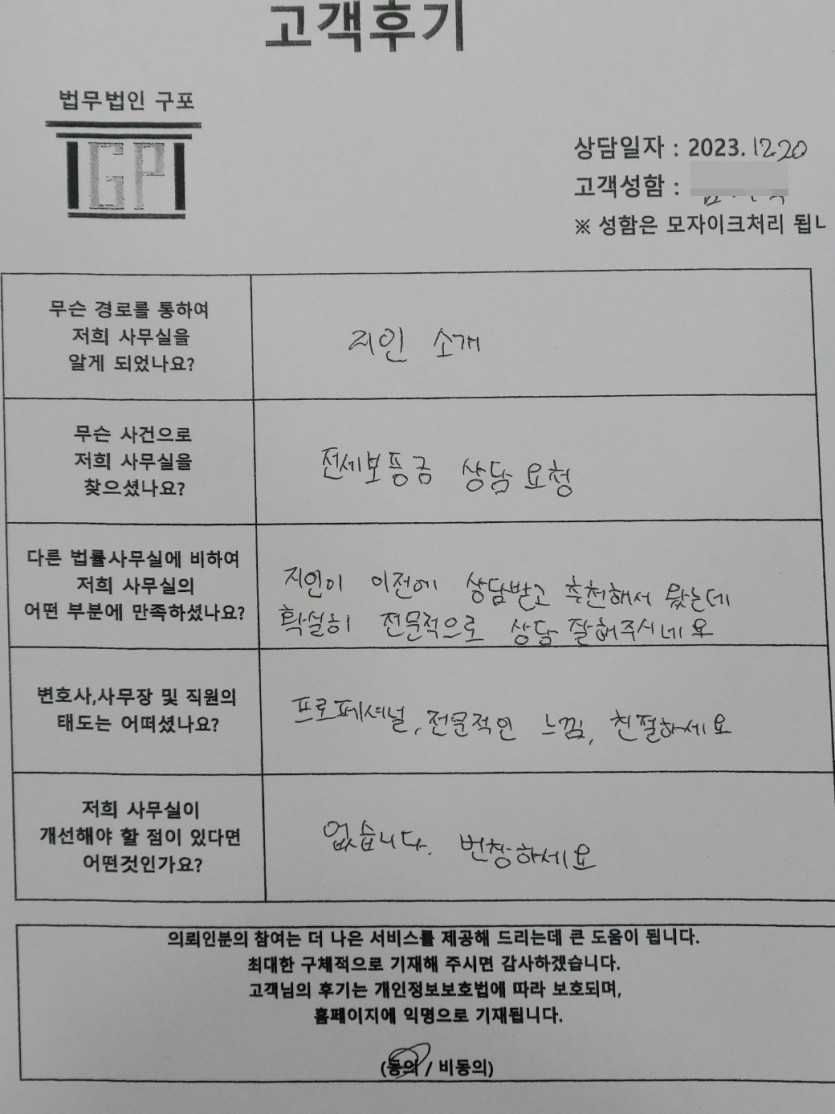 고객후기
법무법인 구포
GP
상담일자 : 2023. 12.20
고객성함 :
※ 성함은 모자이크처리 됩니
무슨 경로를 통하여
저희 사무실을
알게 되었나요?
지인 소개
무슨 사건으로
저희 사무실을
찾으셨나요?
전세보증금 상담 요청
다른 법률사무실에 비하여
저희 사무실의
어떤 부분에 만족하셨나요?
지인이 이전에 상담받고 추천해서 왔는데
확실히 전문적으로 상담 잘해주시네요
변호사,사무장 및 직원의
태도는 어떠셨나요?
프로페셔널, 전문적인 느낌, 친절하세요
저희 사무실이
개선해야 할 점이 있다면
어떤것인가요?
없습니다. 번창하세요
의뢰인분의 참여는 더 나은 서비스를 제공해 드리는데 큰 도움이 됩니다.
최대한 구체적으로 기재해 주시면 감사하겠습니다.
고객님의 후기는 개인정보보호법에 따라 보호되며,
홈페이지에 익명으로 기재됩니다.
(동의 / 비동의)